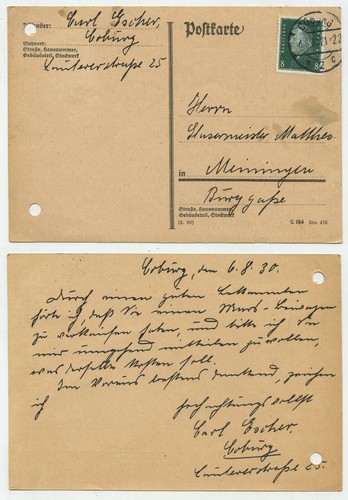 Absender: Carl Escher,
Coburg
Wohnort:
Straße, Hausnummer,
Gebäudeteil, Stockwerk
Lautererstraße 25
Postkarte
8 8
6.8. 21-22
c
Herrn
Glasermeister Matthes
in Meiningen
Burggaße
Straße, Hausnummer,
Gebäudeteil, Stockwerk
(3. 30)
C 154 Din 476
Coburg, den 6.8.30.
Durch einen guten Bekannten
hörte ich, daß Sie einen Beiwagen
zu verkaufen haben, und bitte ich Sie
mir umgehend mitteilen zu wollen,
was derselbe kosten soll.
Im Voraus bestens dankend, zeichne
ich hochachtungsvollst
Carl Escher,
Coburg
Lautererstraße 25.